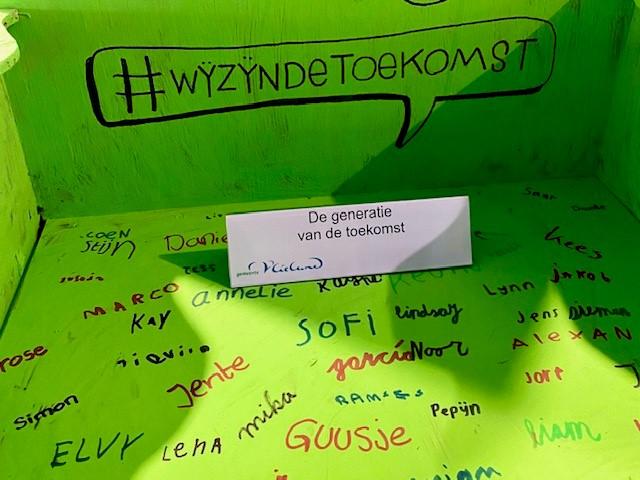 #WŸZŸNDETOEKOMST
De generatie
van de toekomst
gemeente Vlieland
COEN
Stijn
Danie
Tess
Kees
MARCO
annelie
Lynn
jakob
KAY
SOFi
lindsay
Jens
siemen
AlexAN
rose
garcia
Noor
Jente
jort
Simon
mika
RAMSES
Pepijn
ELVY
LeNA
GUUSJE
liam